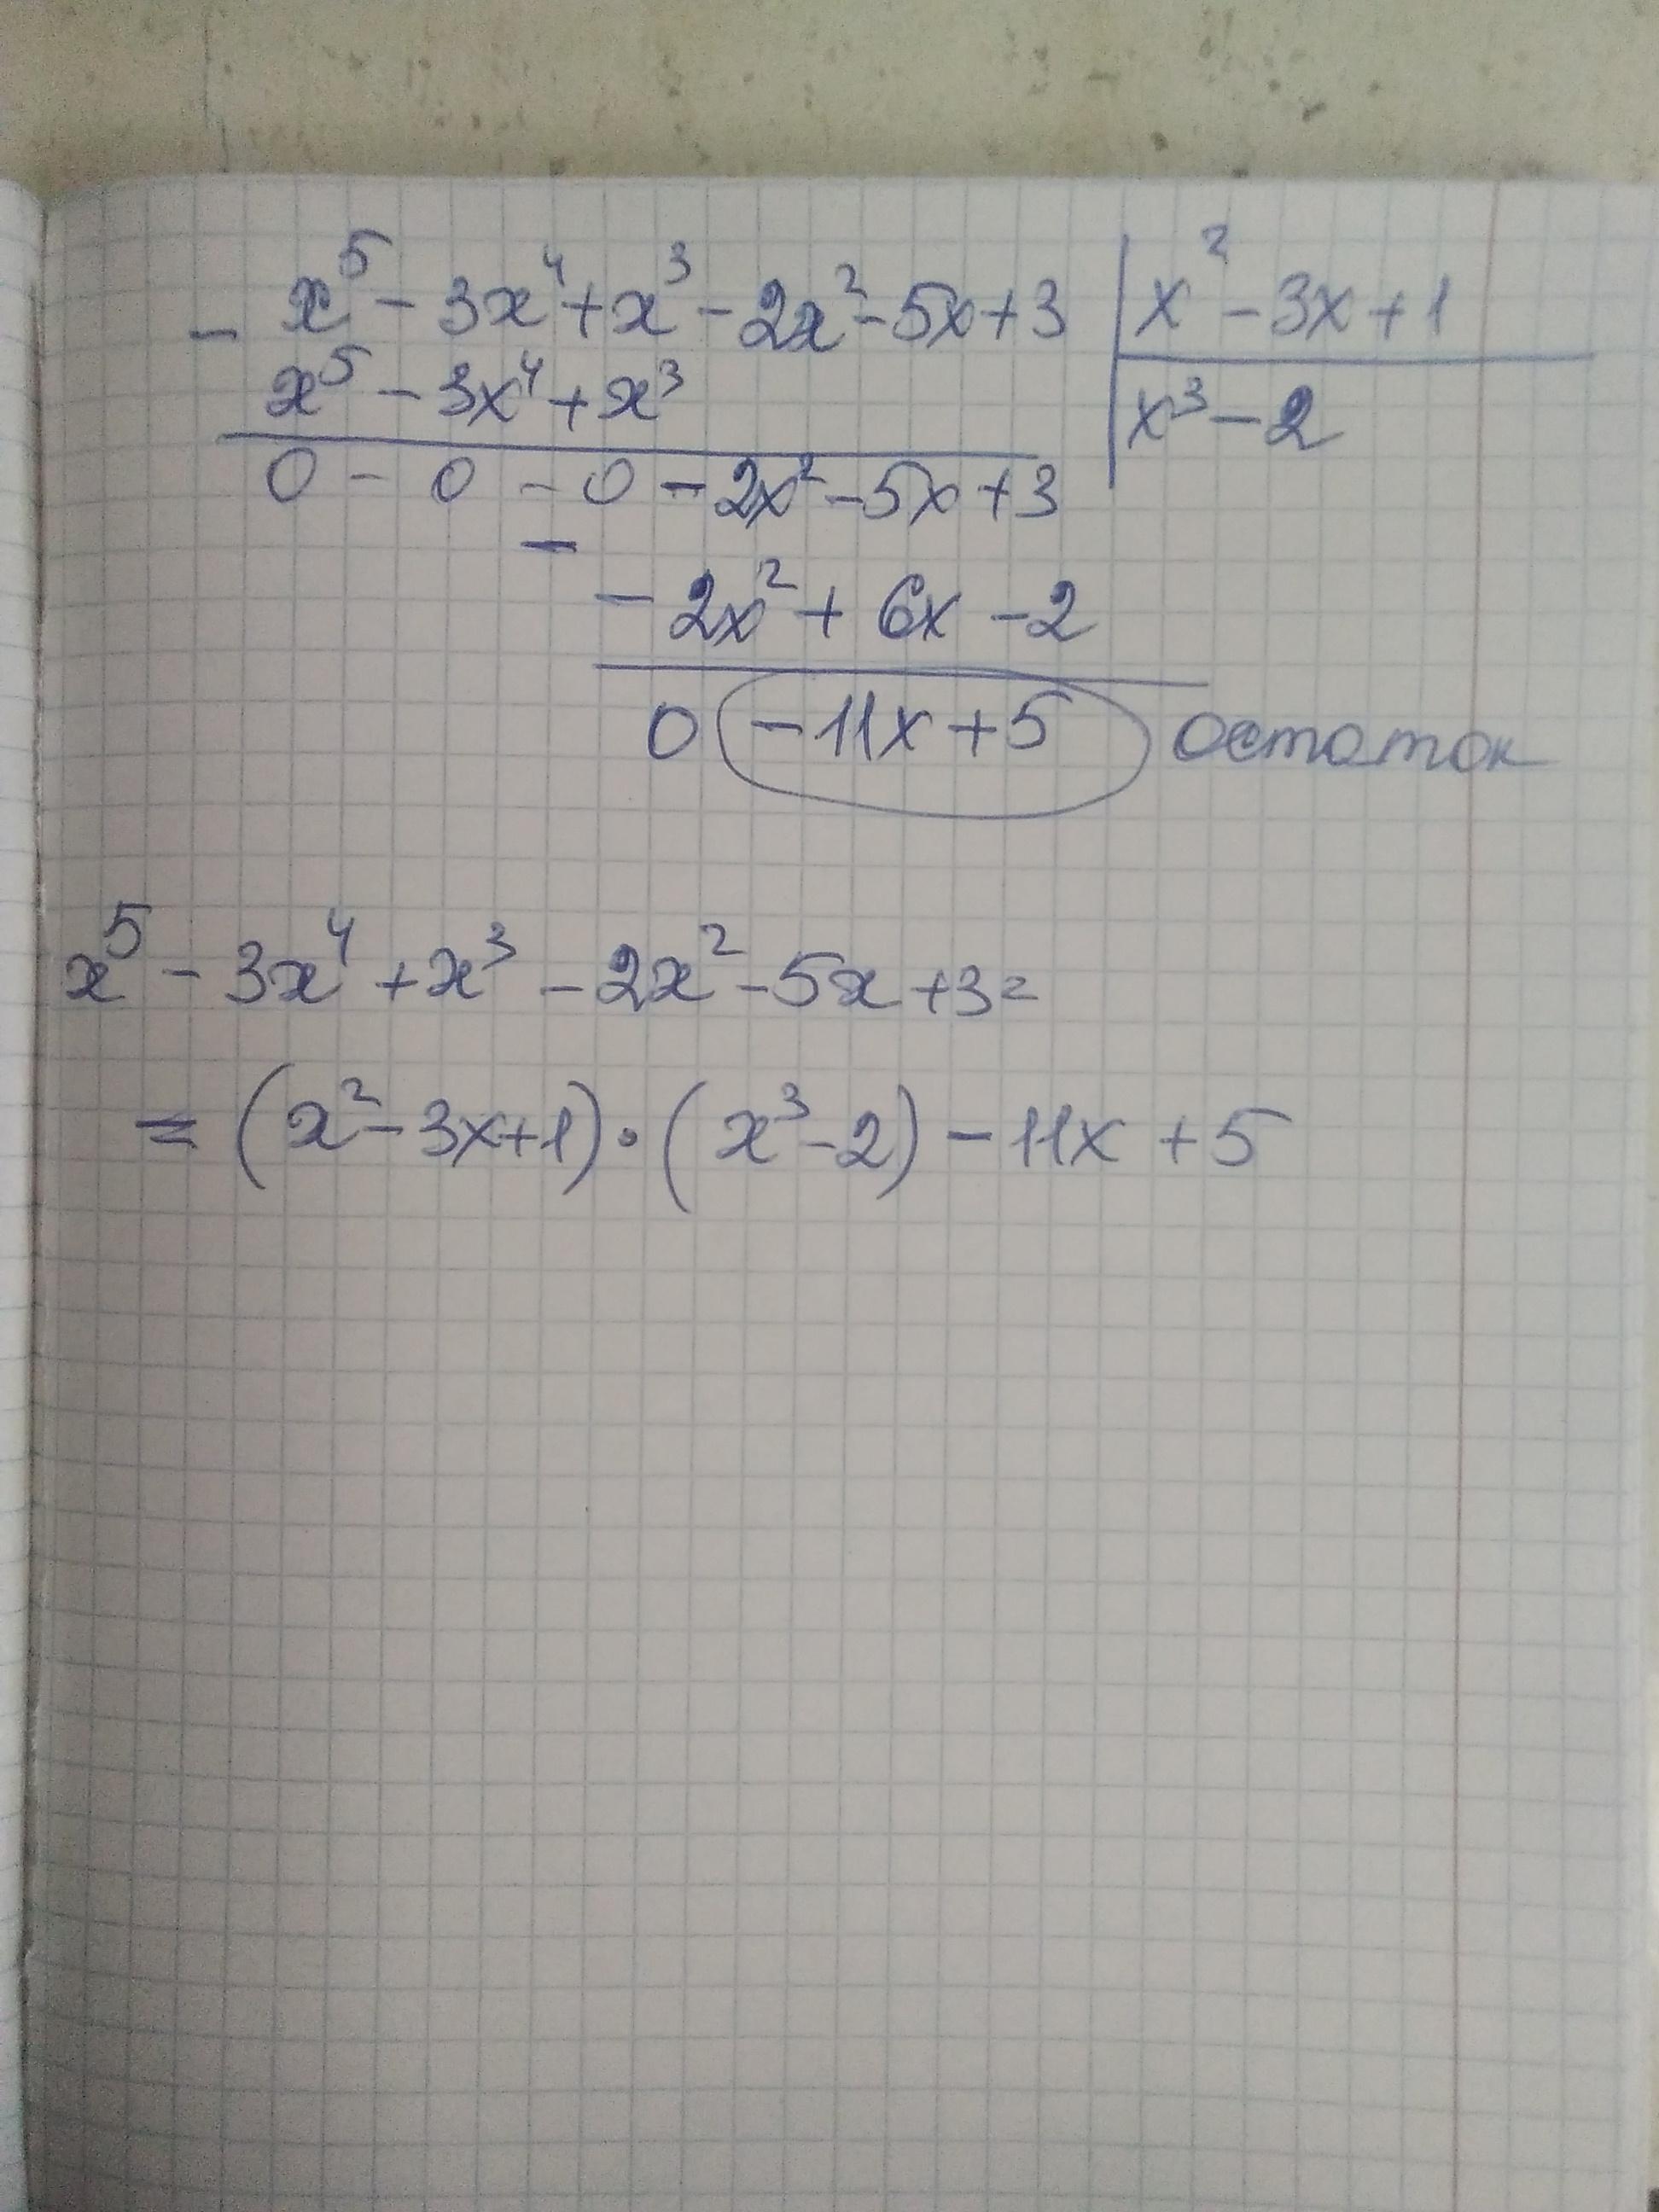 - x⁵ - 3x⁴ + x³ - 2x² - 5x + 3 | x² - 3x + 1
x⁵ - 3x⁴ + x³ | x³ - 2
0 - 0 - 0 - 2x² - 5x + 3
-
- 2x² + 6x - 2
0 - 11x + 5 остаток
x⁵ - 3x⁴ + x³ - 2x² - 5x + 3 =
= (x² - 3x + 1) · (x³ - 2) - 11x + 5